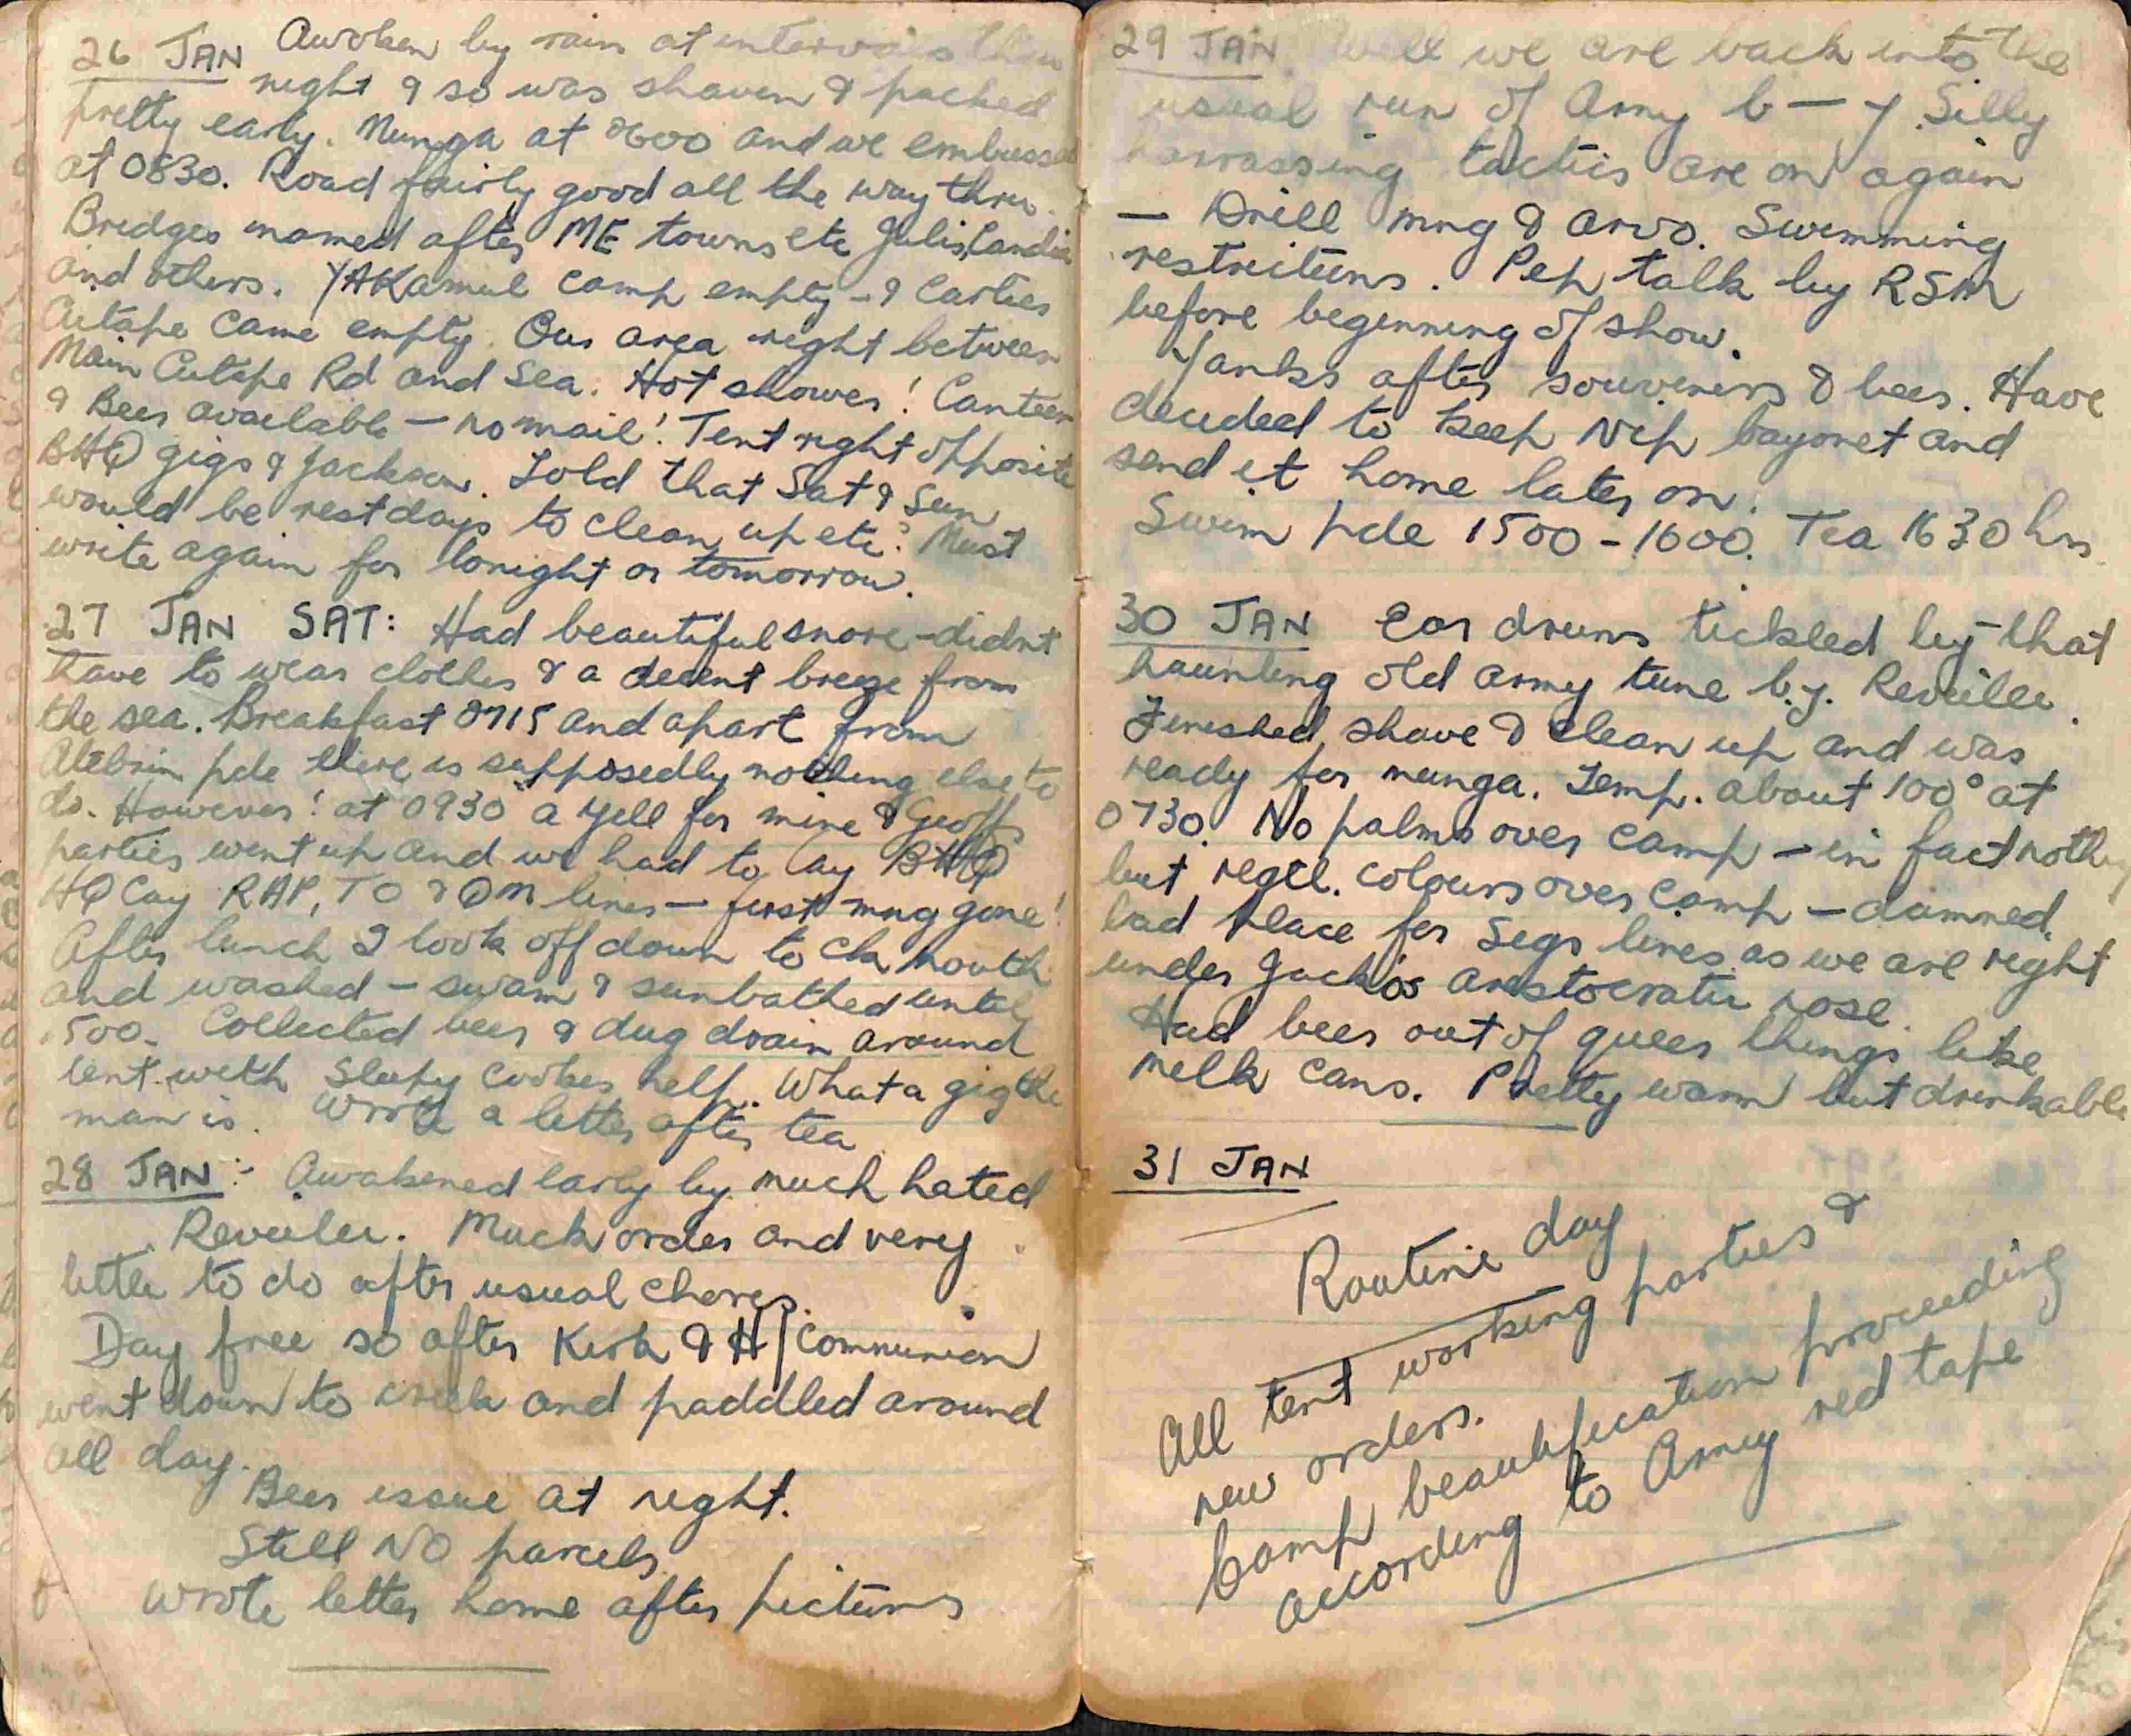 26 JAN Awoken by rain at intervals thru
night & so was shaven & packed
pretty early. Munga at 0600 and we embussed
at 0830. Road fairly good all the way thru.
Bridges named after ME towns etc Julis, Candia
and others. YAKamul camp empty - & Carties
Aitape came empty. Our area right between
Main Aitape Rd and sea. Hot shower! Canteen
& Beer available - no mail! Tent right opposite
BHQ gigs & Jackson. Told that Sat & Sun
would be rest days to clean up etc. Must
write again for tonight or tomorrow.
27 JAN SAT: Had beautiful snore - didnt
have to wear clothes & a decent breeze from
the sea. Breakfast 0715 and apart from
Atebrin pde there is supposedly nothing else to
do. However! at 0930 a yell for mine & Geoffs
parties went up and we had to lay BHQ
HQ Coy RAP, TO & QM lines - first mng gone!
After lunch I took off down to Ck mouth
and washed - swam & sunbathed until
1500. Collected beer & dug drain around
tent with Sleepy Cookes help. What a gig the
man is. Wrote a letter after tea
28 JAN :- Awakened early by much hated
Reveille. Muck order and very
little to do after usual chores.
Day free so after Kirk & H/Communion
went down to creek and paddled around
all day.
Beer issue at night.
Still NO parcels.
Wrote letter home after pictures
29 JAN Well we are back into the
usual run of Army b — y. Silly
harrassing tactics are on again
— Drill mng & arvo. Swimming
restrictions. Pep talk by RSM
before beginning of show.
Yanks after souvenirs & beer. Have
decided to keep Nip bayonet and
send it home later on.
Swim pde 1500 - 1600. Tea 1630 hrs.
30 JAN Ear drums tickled by that
haunting old army tune b.y. Reveille.
Finished shave & clean up and was
ready for munga. Temp. about 100° at
0730. No palms over camp - in fact nothing
but regtl. colours over camp - damned
bad place for Sigs lines as we are right
under Jacko's aristocratic nose.
Had beer out of queer things like
milk cans. Pretty warm but drinkable
31 JAN
Routine day
All tent working parties &
new orders.
Camp beautification proceeding
according to Army red tape